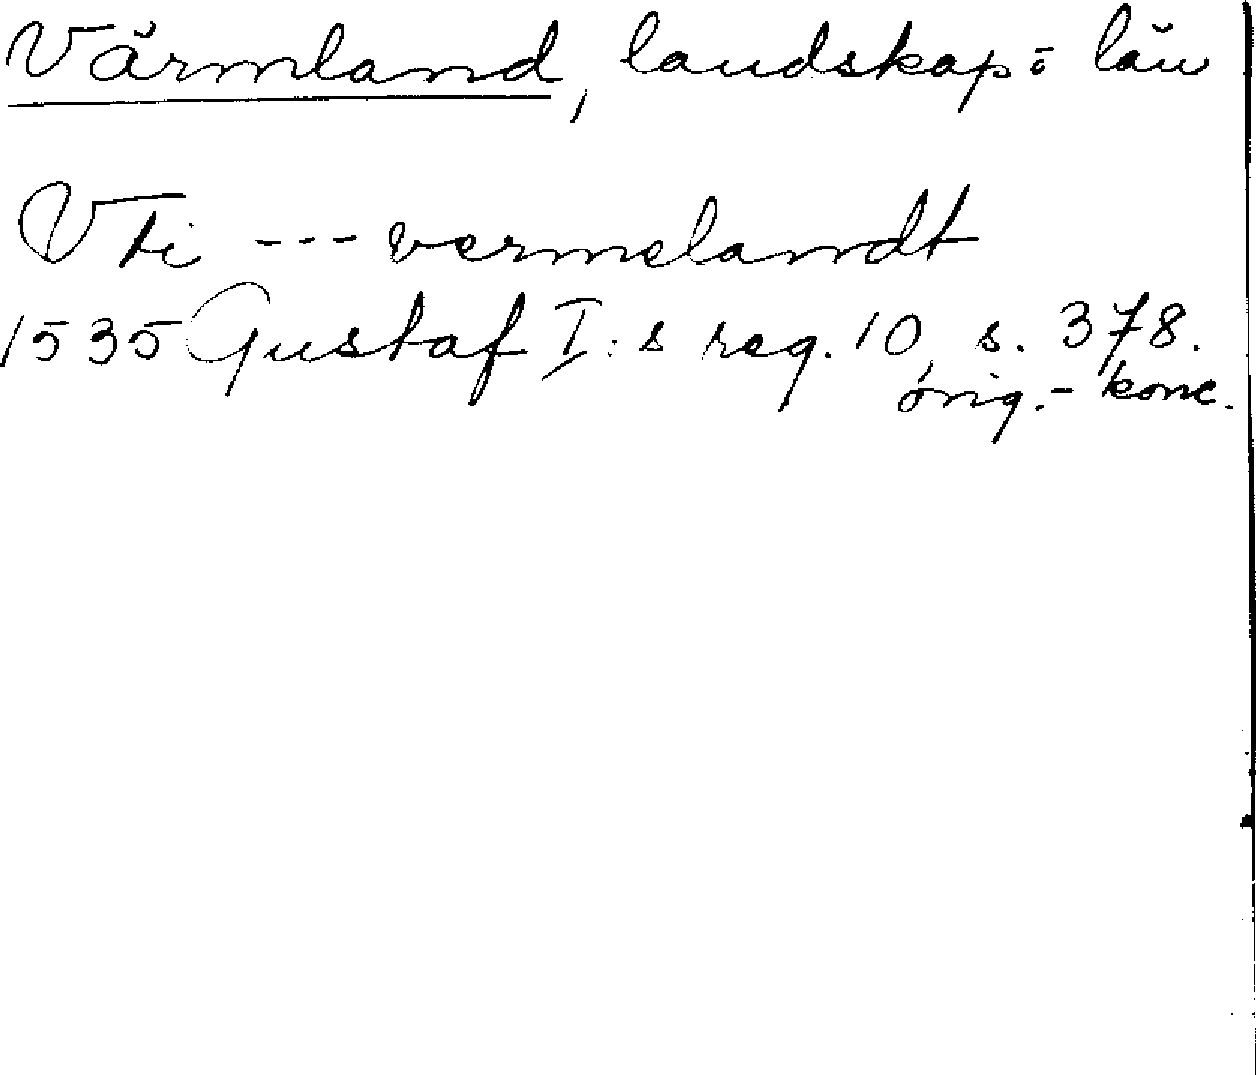 Värmland, landskap o län
Vti --- vermelandt
1535 Gustaf I:s reg. 10, s. 378.
orig.- konc.